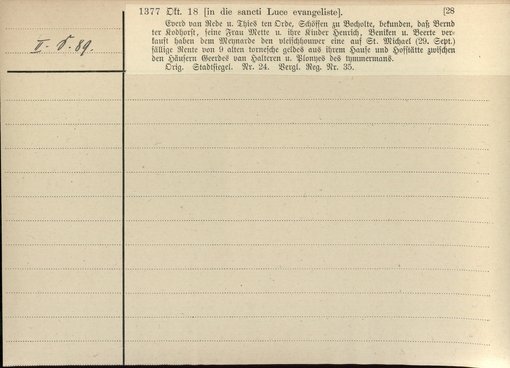 1377 Okt. 18 [in die sancti Luce evangeliste]. [28
Everd van Rede u. Thies ten Orde, Schöffen zu Bocholte, bekunden, daß Bernd
ter Kodhorst, seine Frau Mette u. ihre Kinder Henrich, Beniken u. Beerte ver-
kauft haben dem Meynarde den vleischhouwer eine auf St. Michael (29. Sept.)
fällige Rente von 9 alten tornesche geldes aus ihrem Hause und Hofstätte zwischen
den Häusern Geerdes van Halteren u. Plonyes des tymmermans.
Orig. Stadtsiegel. Nr. 24. Vergl. Reg. Nr. 35.
II. S. 89.